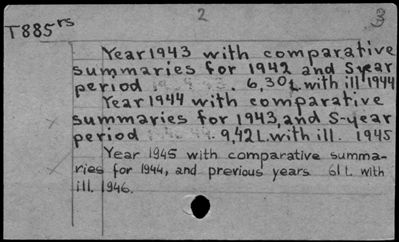 2
3
T885rs
Year 1943 with comparative
summaries for 1942 and 5year
period . 6,30 L. with ill 1944
Year 1944 with comparative
summaries for 1943, and 5-year
period . 9,42 L. with ill. 1945
Year 1945 with comparative summa-
ries for 1944, and previous years 61 l. with
ill. 1946.